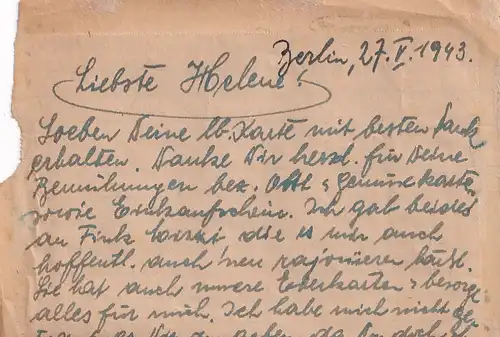 Berlin, 27.V.1943.
Liebste Helene!
Soeben Deine lb. Karte mit besten Dank
erhalten. Danke Dir herzl. für Deine
Bemühungen bez. Obst & Gemüsekarte
sowie Einkaufschein. Ich gab beides
an Fink die es mir auch
hoffentl. auch 'nen rajonieren läßt.
Sie hat auch unsere Eierkarten & besorgt
alles für mich. Ich habe mich nicht